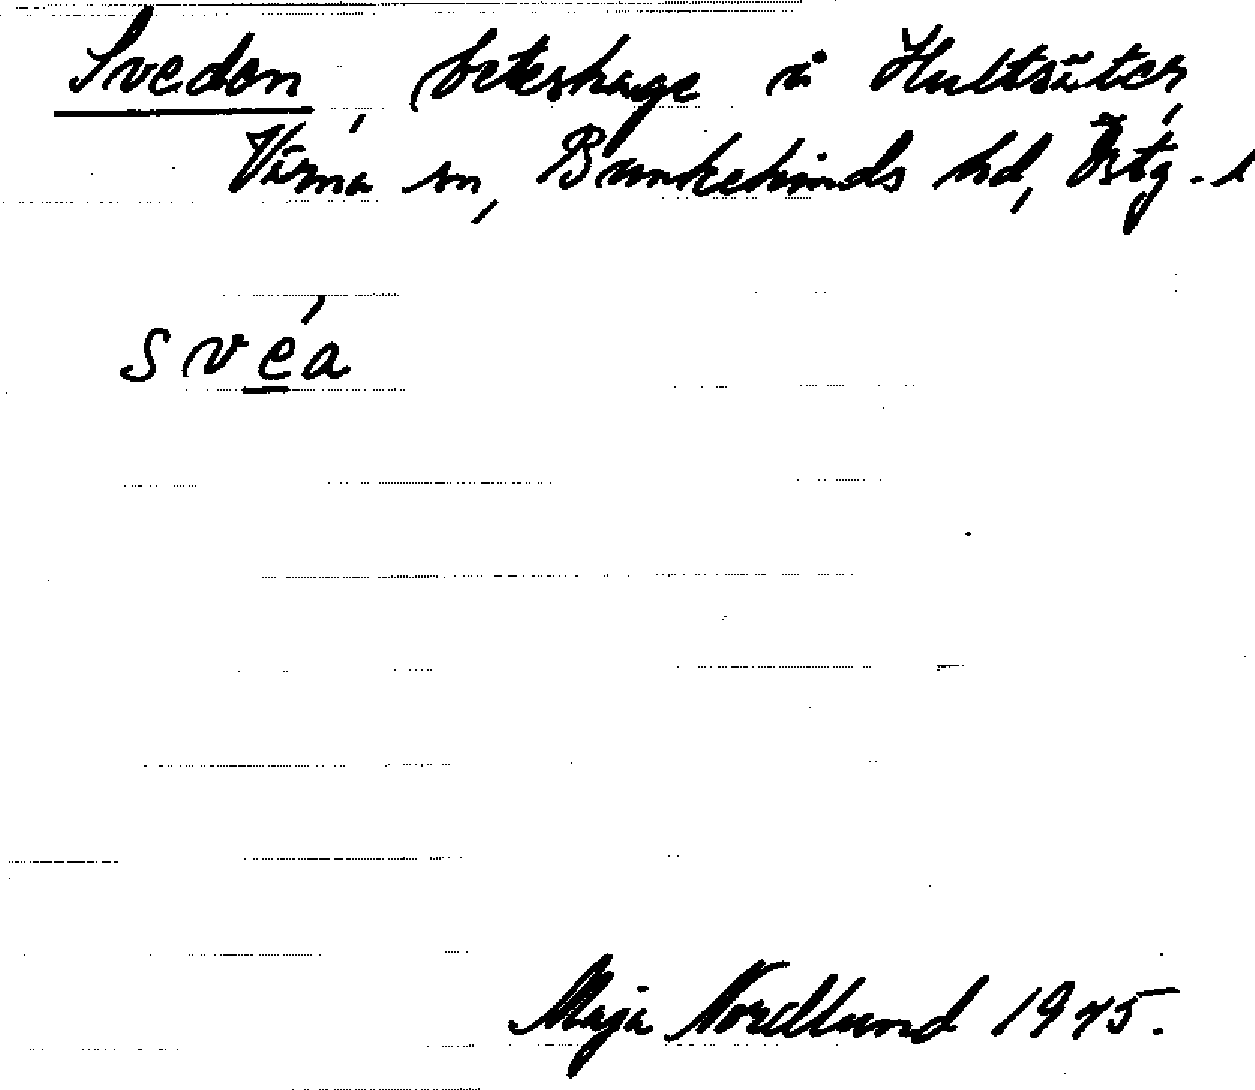 Svedon, beteshage å Hultsäter,
Värna sn, Bankekinds hd, Östg. l
svéa
Maja Nordlund 1945.